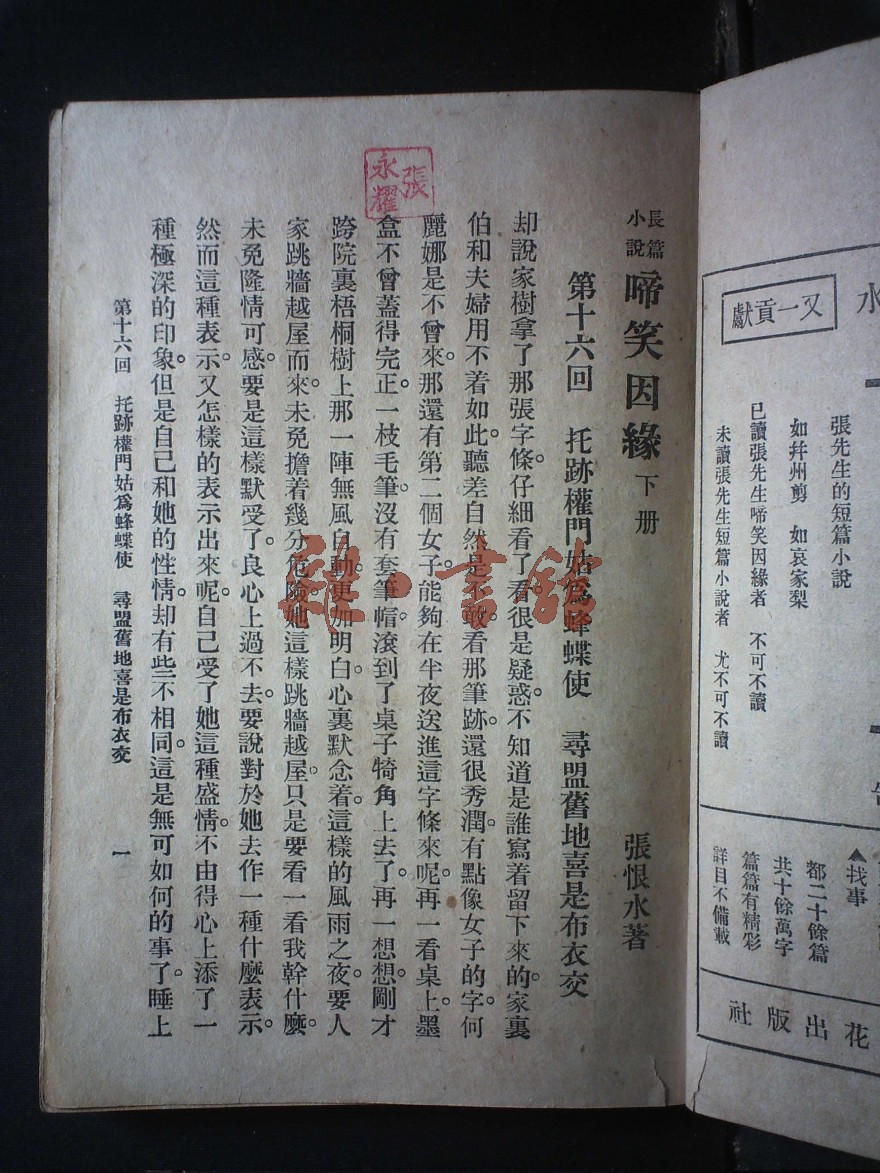 水
又一貢獻
張先生的短篇小說
如幷州剪　如哀家梨
已讀張先生啼笑因緣者　不可不讀
未讀張先生短篇小說者　尤不可不讀
▲找事
都二十餘篇
共十餘萬字
篇篇有精彩
詳目不備載
花出版社
長篇小說 啼笑因緣 下册
張恨水著
第十六回　托跡權門姑爲蜂蝶使　尋盟舊地喜是布衣交
却說家樹拿了那張字條。仔細看了看。很是疑惑。不知道是誰寫着留下來的。家裏
伯和夫婦用不着如此。聽差自然是不敢看那筆跡。還很秀潤。有點像女子的字。何
麗娜是不曾來。那還有第二個女子能夠在半夜送進這字條來呢。再一看桌上。墨
盒不曾蓋得完。正一枝毛筆。沒有套筆帽。滾到了桌子犄角上去了。再一想想。剛才
跨院裏梧桐樹上那一陣無風自動。更加明白。心裏默念着。這樣的風雨之夜。要人
家跳牆越屋而來。未免擔着幾分危險。她這樣跳牆越屋。只是要看一看我幹什麼。
未免隆情可感。要是這樣默受了。良心上過不去。要說對於她去作一種什麼表示。
然而這種表示。又怎樣的表示出來呢。自己受了她這種盛情。不由得心上添了一
種極深的印象。但是自己和她的性情。却有些不相同。這是無可如何的事了。睡上
第十六回　托跡權門姑爲蜂蝶使　尋盟舊地喜是布衣交　一
張永耀